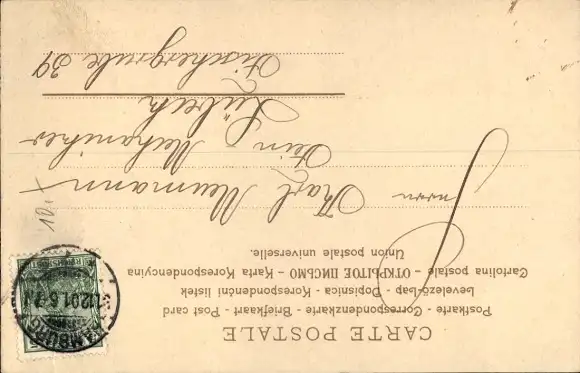 CARTE POSTALE
Postkarte - Correspondenzkarte - Briefkaart - Post card
Levelező-Lap - Dopisnica - Korespondenční listek
Cartolina postale - ОТКРЫТОЕ ПИСЬМО - Karta Korespondencyjna
Union postale universelle.
Herrn
Karl Neumann
Mechaniker
Lübeck
Fischergrube 39
HAMBURG
12.01.6-7